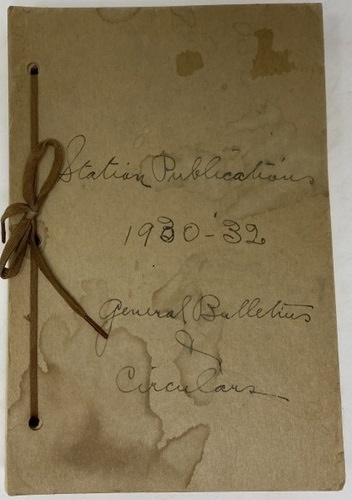 Station Publications
1930-32
General Bulletins
&
Circulars